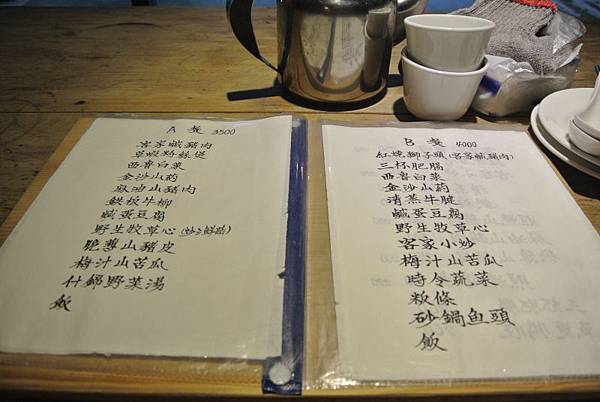 A 餐 3500
客家鹹豬肉
草蝦粉絲煲
西魯白菜
金沙山葯
麻油山豬肉
鉄板牛柳
鹹蛋豆腐
野生牧草心
脆醬山豬皮
梅汁山苦瓜
什錦野菜湯
飯
B 餐 4000
紅燒獅子頭(客家鹹豬肉)
三杯肥腸
西魯白菜
金沙山葯
清蒸牛腱
鹹蛋豆腐
野生牧草心
客家小炒
梅汁山苦瓜
時令蔬菜
粄條
砂鍋魚頭
飯